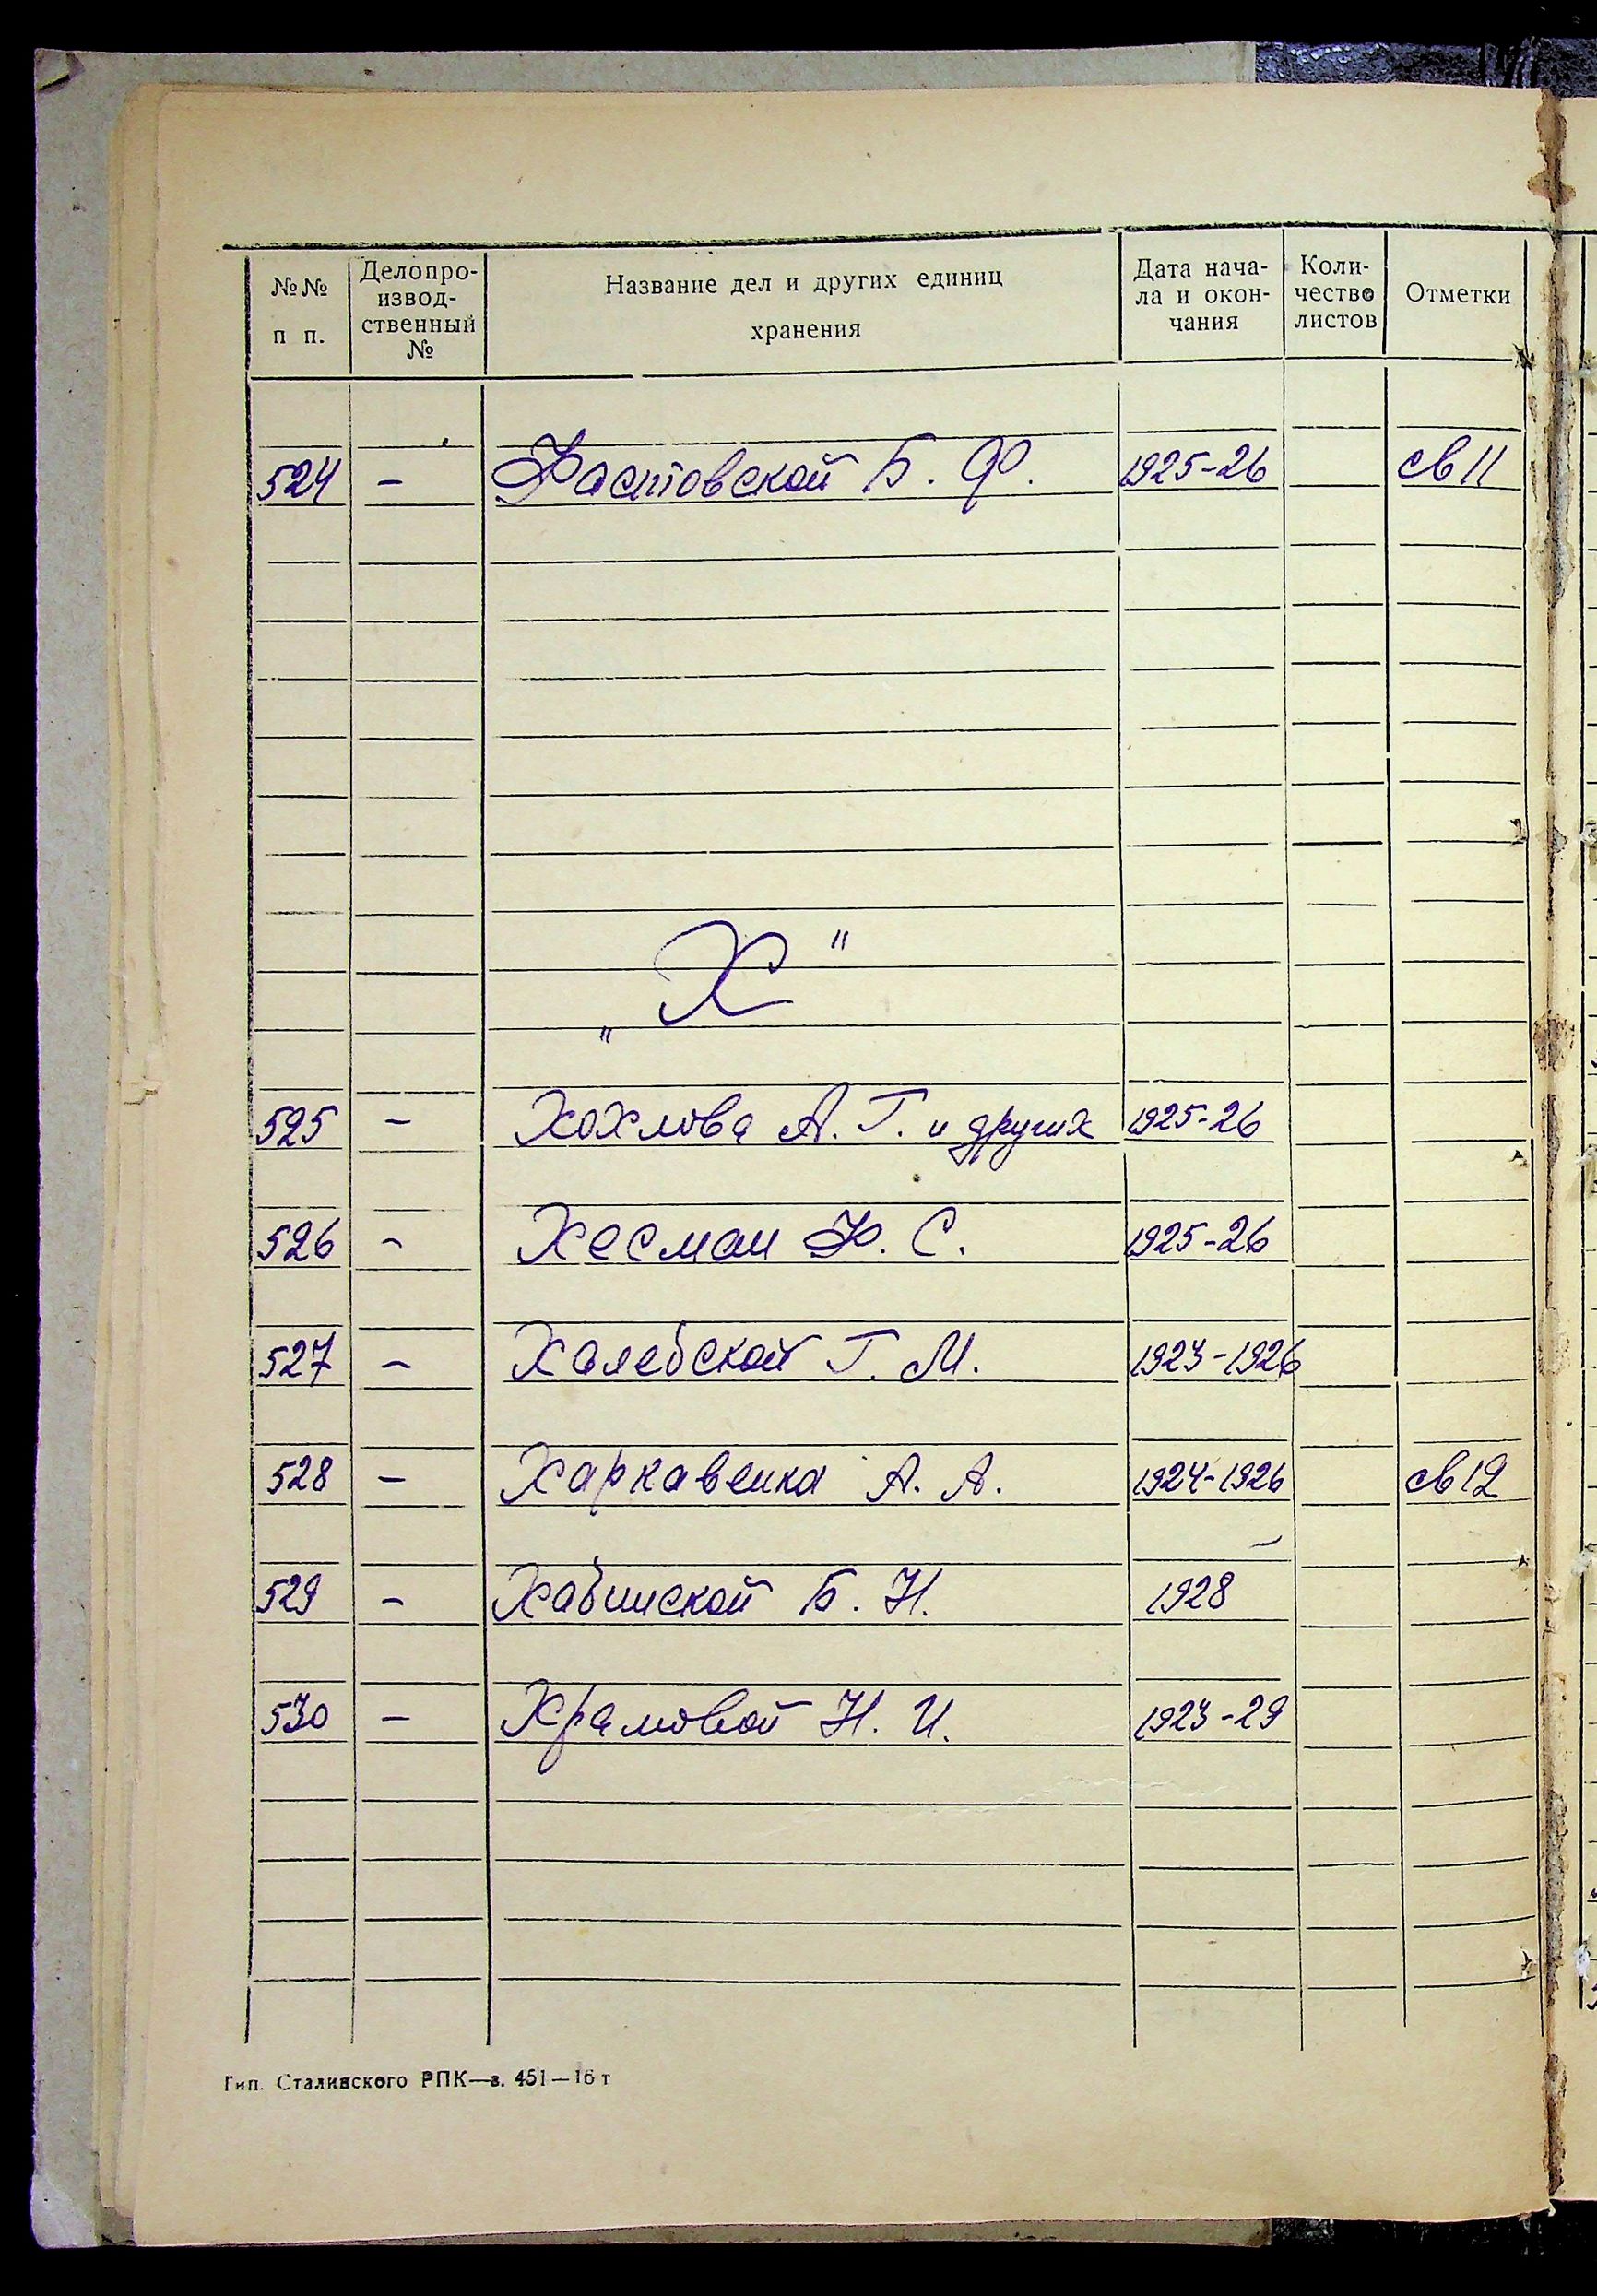 №№ п п. Делопро-извод-ственный № Название дел и других единиц хранения Дата нача-ла и окон-чания Коли-чество листов Отметки
524 – Фастовской Б. Ф. 1925-26 св 11
„Х"
525 – Хохлова А. Г. и других 1925-26
526 – Хесман Ф. С. 1925-26
527 – Халебской Г. М. 1923-1926
528 – Харкавенко А. А. 1924-1926 св 12
529 – Хабинской Б. Н. 1928
530 – Храмовой Н. И. 1923-29
Тип. Сталинского РПК—з. 451—16 т